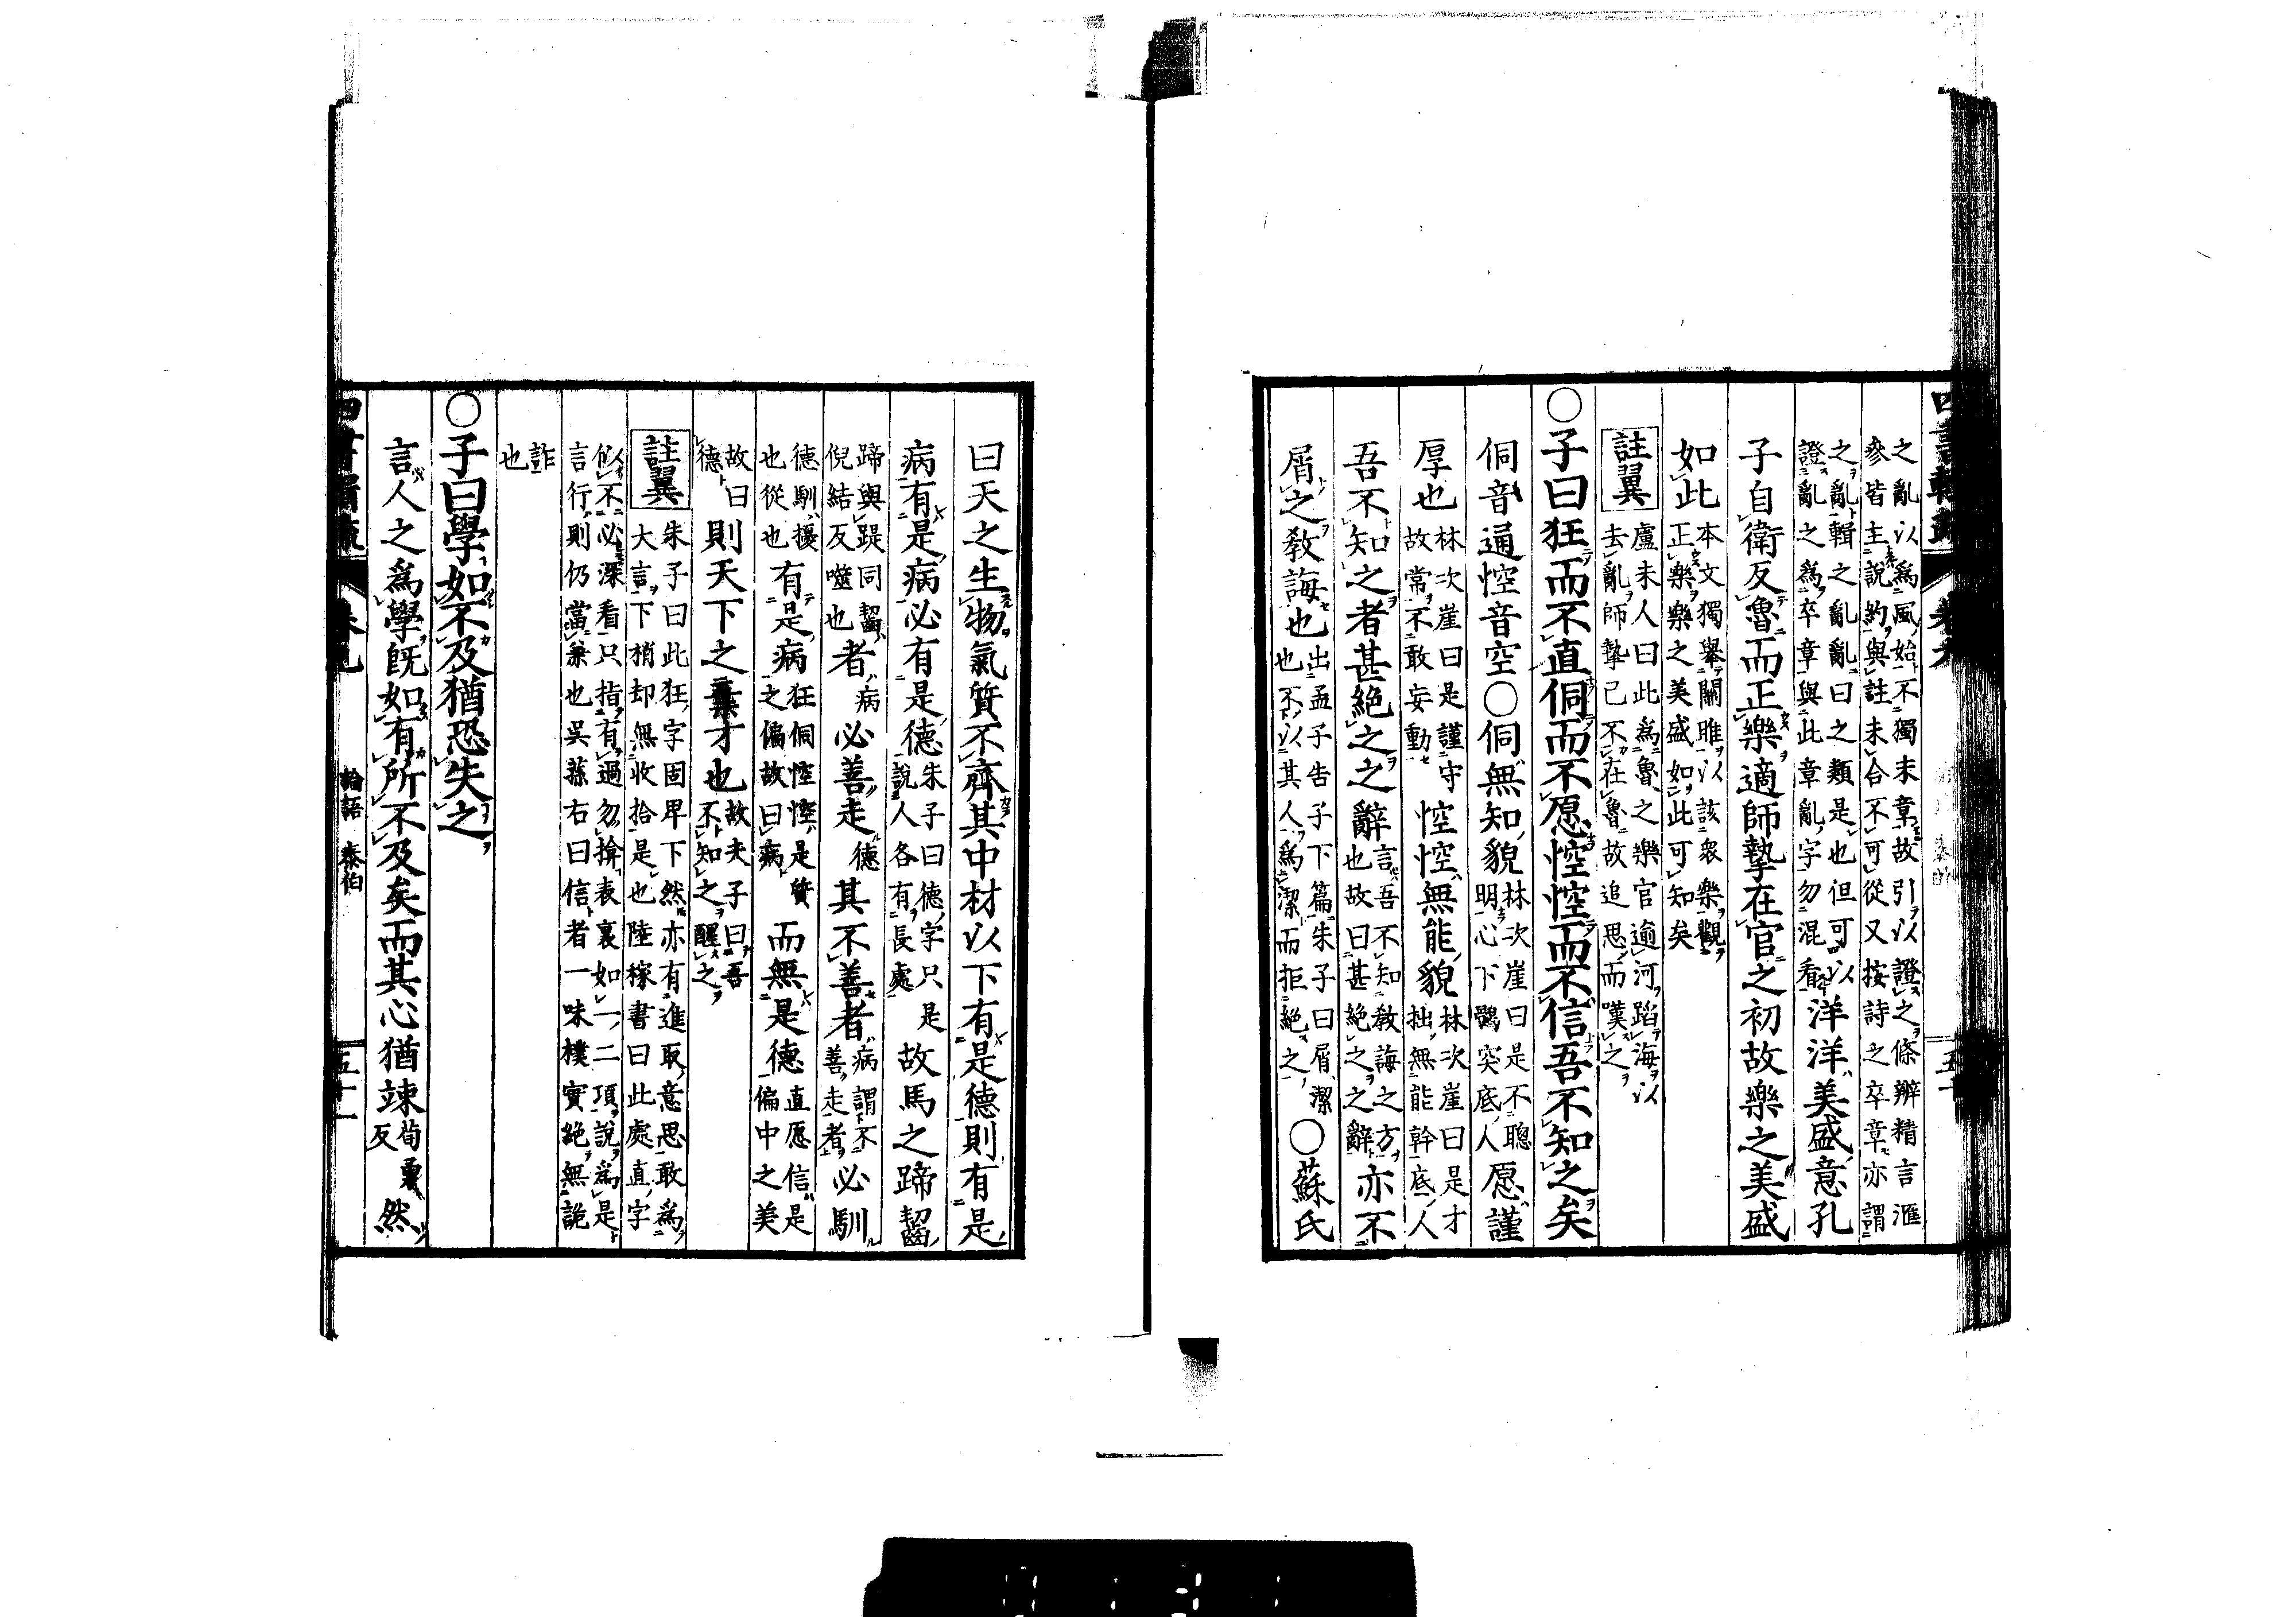 四書輯疏
之亂以爲風始不獨末章故引以證之條辨精言滙
參皆主說約與註未合不可從又按詩之卒章亦謂
之亂輯之亂亂曰之類是也但可以
證亂之爲卒章與此章亂字勿混看
洋洋美盛意孔
子自衛反魯而正樂適師摯在官之初故樂之美盛
如此
本文獨舉關雎以該衆樂觀
正樂樂之美盛如此可知矣
註翼
盧未人曰此爲魯之樂官逾河蹈海以
去亂師摯已不在魯故追思而嘆之
○子曰狂而不直侗而不愿悾悾而不信吾不知之矣
侗音通悾音空○侗無知貌
林次崖曰是不聰
明心下鶻突底人
愿謹
厚也
林次崖曰是謹守
故常不敢妄動
悾悾無能貌
林次崖曰是才
拙無能幹底人
吾不知之者甚絕之之辭
言吾不知教誨之方
也故曰甚絕之之辭
亦不
屑之教誨也
出孟子告子下篇朱子曰屑潔
也不以其人爲潔而拒絕之
○蘇氏
曰天之生物氣質不齊其中材以下有是德則有是
病有是病必有是德
朱子曰德字只是
說人各有長處
故馬之蹄齧
蹄與踶同齧
倪結反噬也
者
病
必善走
德
其不善者
病謂不
善走者
必馴
德馴擾
也從也
有是病
狂侗悾悾是質
之偏故曰病
而無是德
直愿信是
偏中之美
故曰
德
則天下之棄才也
故夫子曰吾
不知之醒之
註翼
朱子曰此狂字固卑下然亦有進取意思敢爲
大言下梢却無收拾是也陸稼書曰此處直字
似不必深看只指有過勿揜表裏如一二項說爲是
言行則仍當兼也吳蓀右曰信者一味樸實絕無詭
詐
也
○子曰學如不及猶恐失之
言人之爲學旣如有所不及矣而其心猶竦
荀勇
反
然
論語 泰伯
五十一